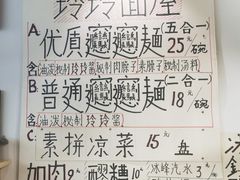 玲玲面屋
A. 优质𰻝𰻝麺 (五合一) 25元/碗
含 油泼 秘制玲玲酱 肉臊子 素臊子 秘制汤料
B. 普通𰻝𰻝麺 (二合一) 18元/碗
含 油泼 秘制玲玲酱
C. 素拼凉菜 15元 盘
加肉
醪糟 10元
冰峰汽水 3元